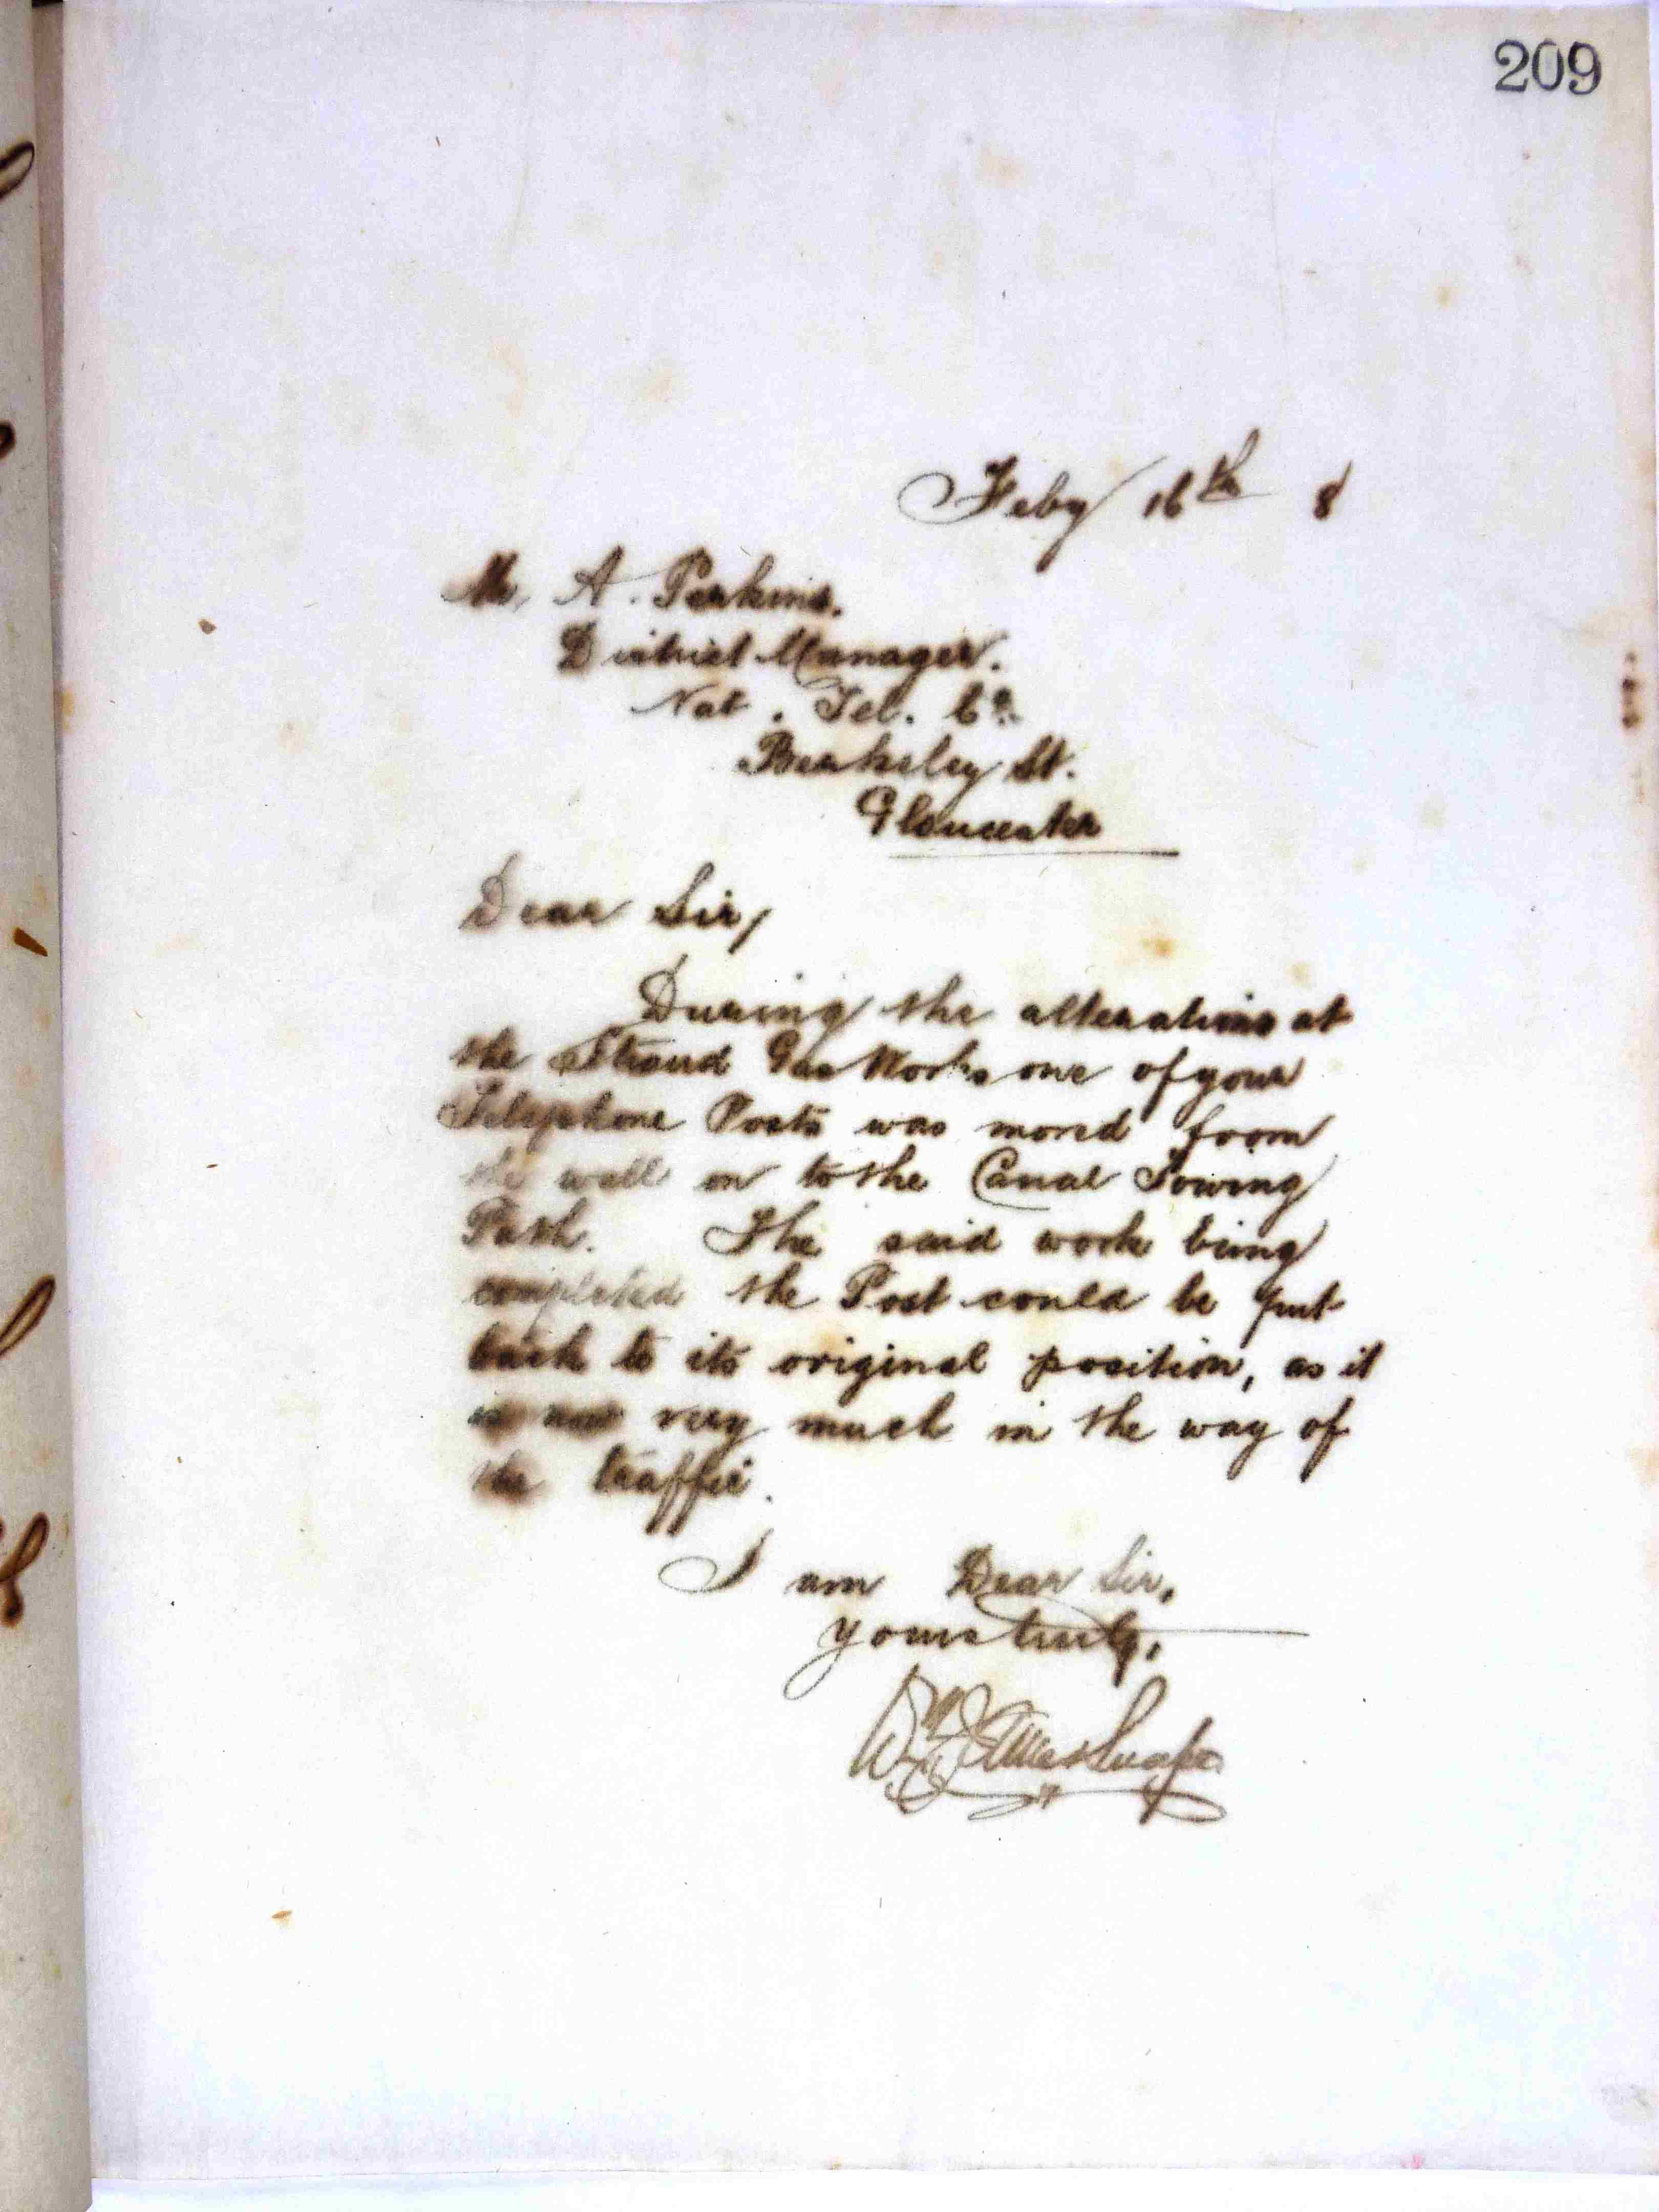 209
Feby 16th 8
Mr. A. Perkins.
District Manager.
Nat. Tel. Co.
Berkeley St.
Gloucester
Dear Sir,
During the alterations at
the Stroud Gas Works one of your
Telephone Posts was moved from
the wall on to the Canal Towing
Path. The said work being
completed the Post could be put
back to its original position, as it
is now very much in the way of
the traffic.
I am Dear Sir,
Yours truly,